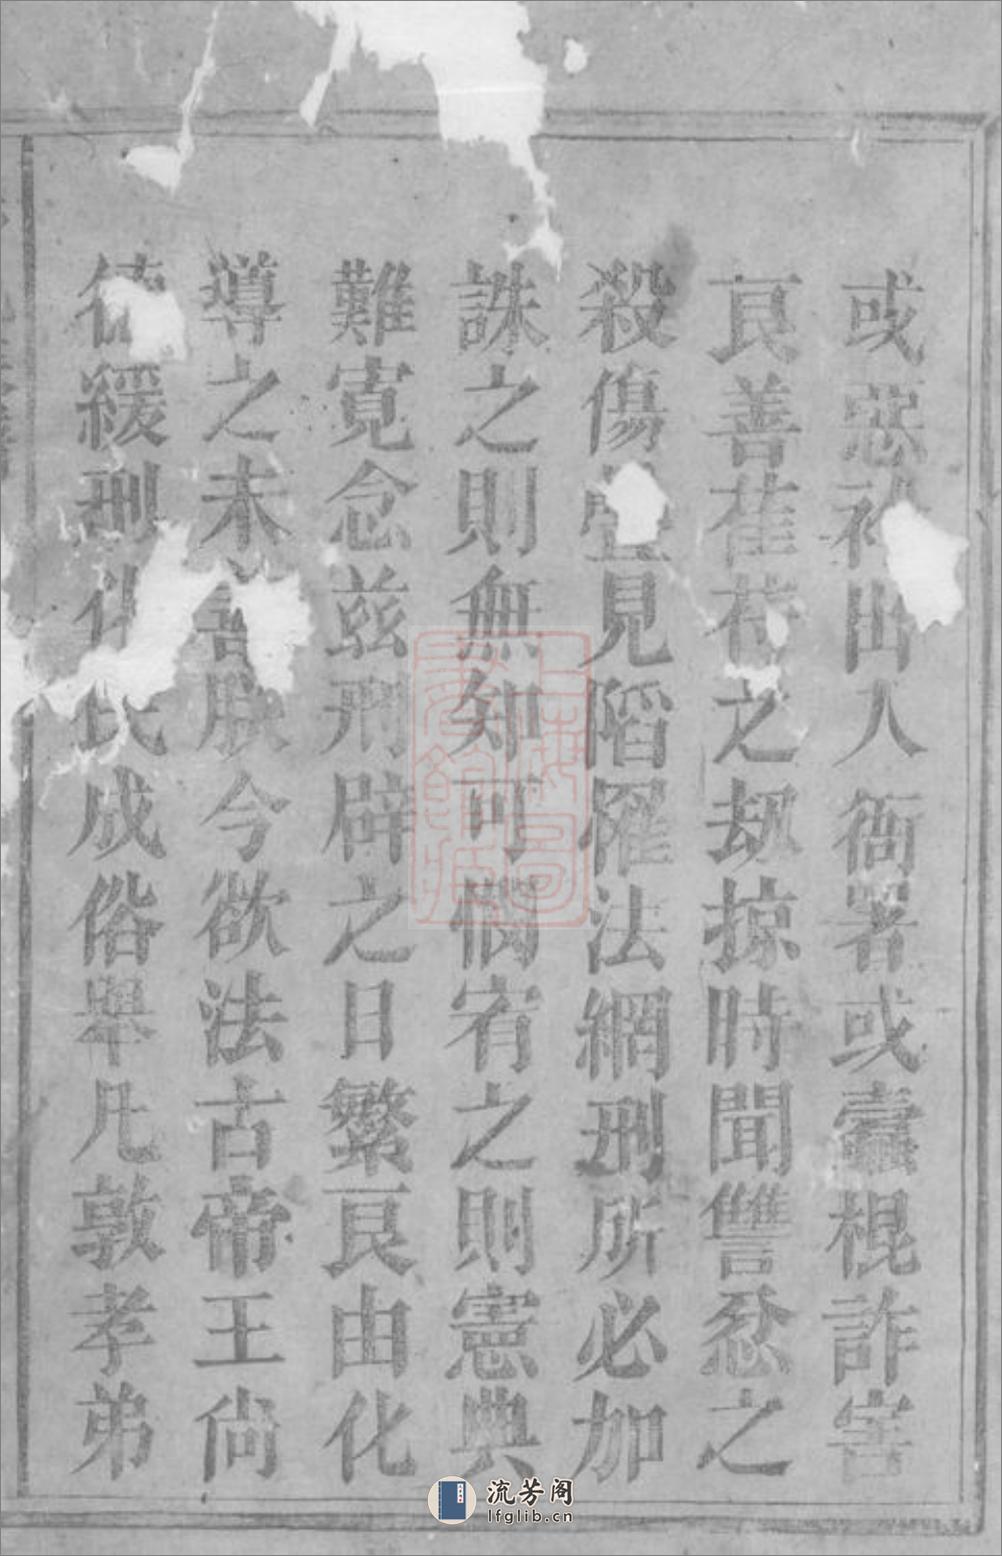 或惡出入衙署或蠹棍詐害
良善萑苻之刼掠時聞讐忿之
殺傷疊見陷罹法網刑所必加
誅之則無知可憫宥之則憲典
難寬念兹刑辟之日繁良由化
導之未朕今欲法古帝王尚
德緩刑化民成俗舉凡敦孝弟
上海圖書館藏
流芳阁
lfglib.cn